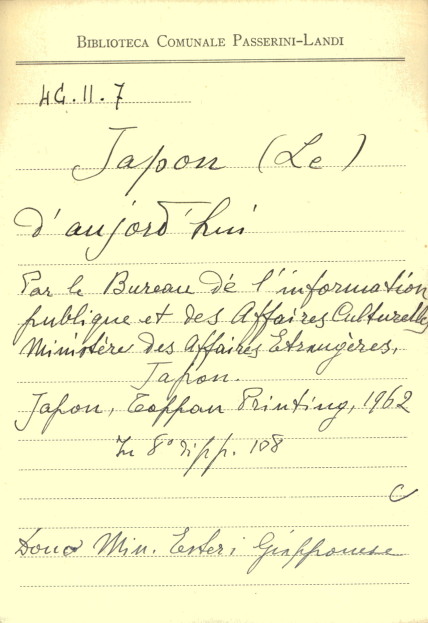 BIBLIOTECA COMUNALE PASSERINI-LANDI
4G.II.7
Japon (Le)
d'aujord'hui
Par le Bureau de l'information
publique et des Affaires Culturelles
Ministère des Affaires Etrangères,
Japon.
Japon, Toppan Printing, 1962
In 8° di pp. 108
C
Dono Min. Esteri Giapponese